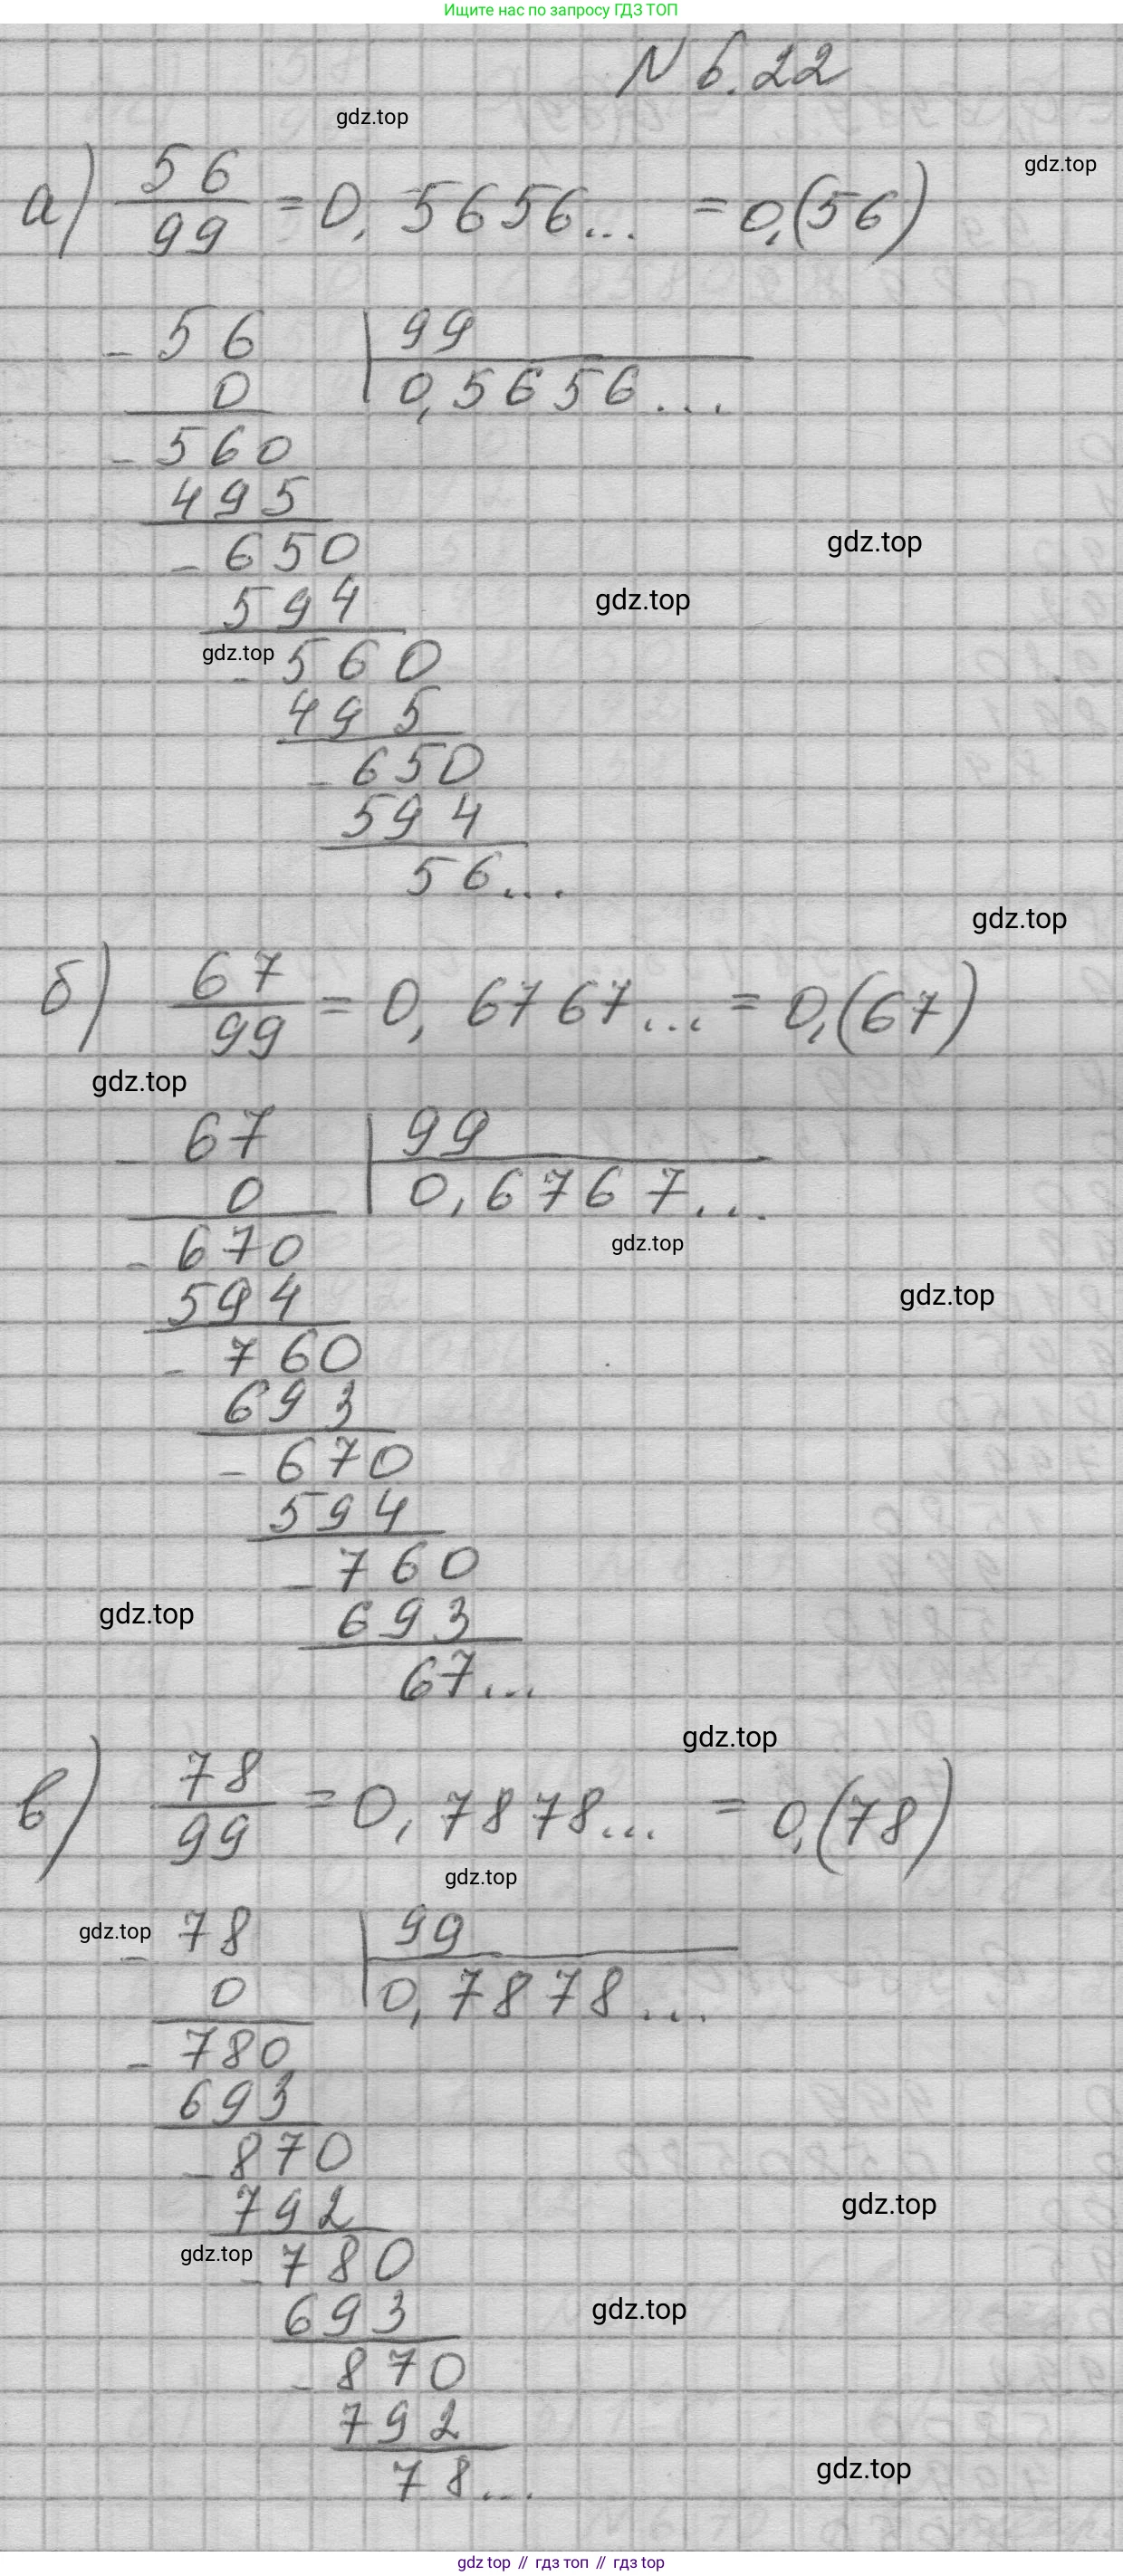 Ищите нас по запросу ГДЗ ТОП
N 6.22
gdz.top
gdz.top
а) 56/99 = 0, 5656... = 0,(56)
- 56 | 99
0 | 0,5656...
- 560
495
- 650
gdz.top
594
gdz.top
gdz.top
- 560
495
- 650
594
56...
gdz.top
б) 67/99 = 0, 6767... = 0,(67)
gdz.top
- 67 | 99
0 | 0,6767...
- 670
gdz.top
594
gdz.top
- 760
693
- 670
594
- 760
gdz.top
693
67...
gdz.top
в) 78/99 = 0, 7878... = 0,(78)
gdz.top
gdz.top
- 78 | 99
0 | 0,7878...
- 780
693
- 870
792
gdz.top
gdz.top
- 780
693
gdz.top
- 870
792
78...
gdz.top
gdz top // гдз топ // gdz top